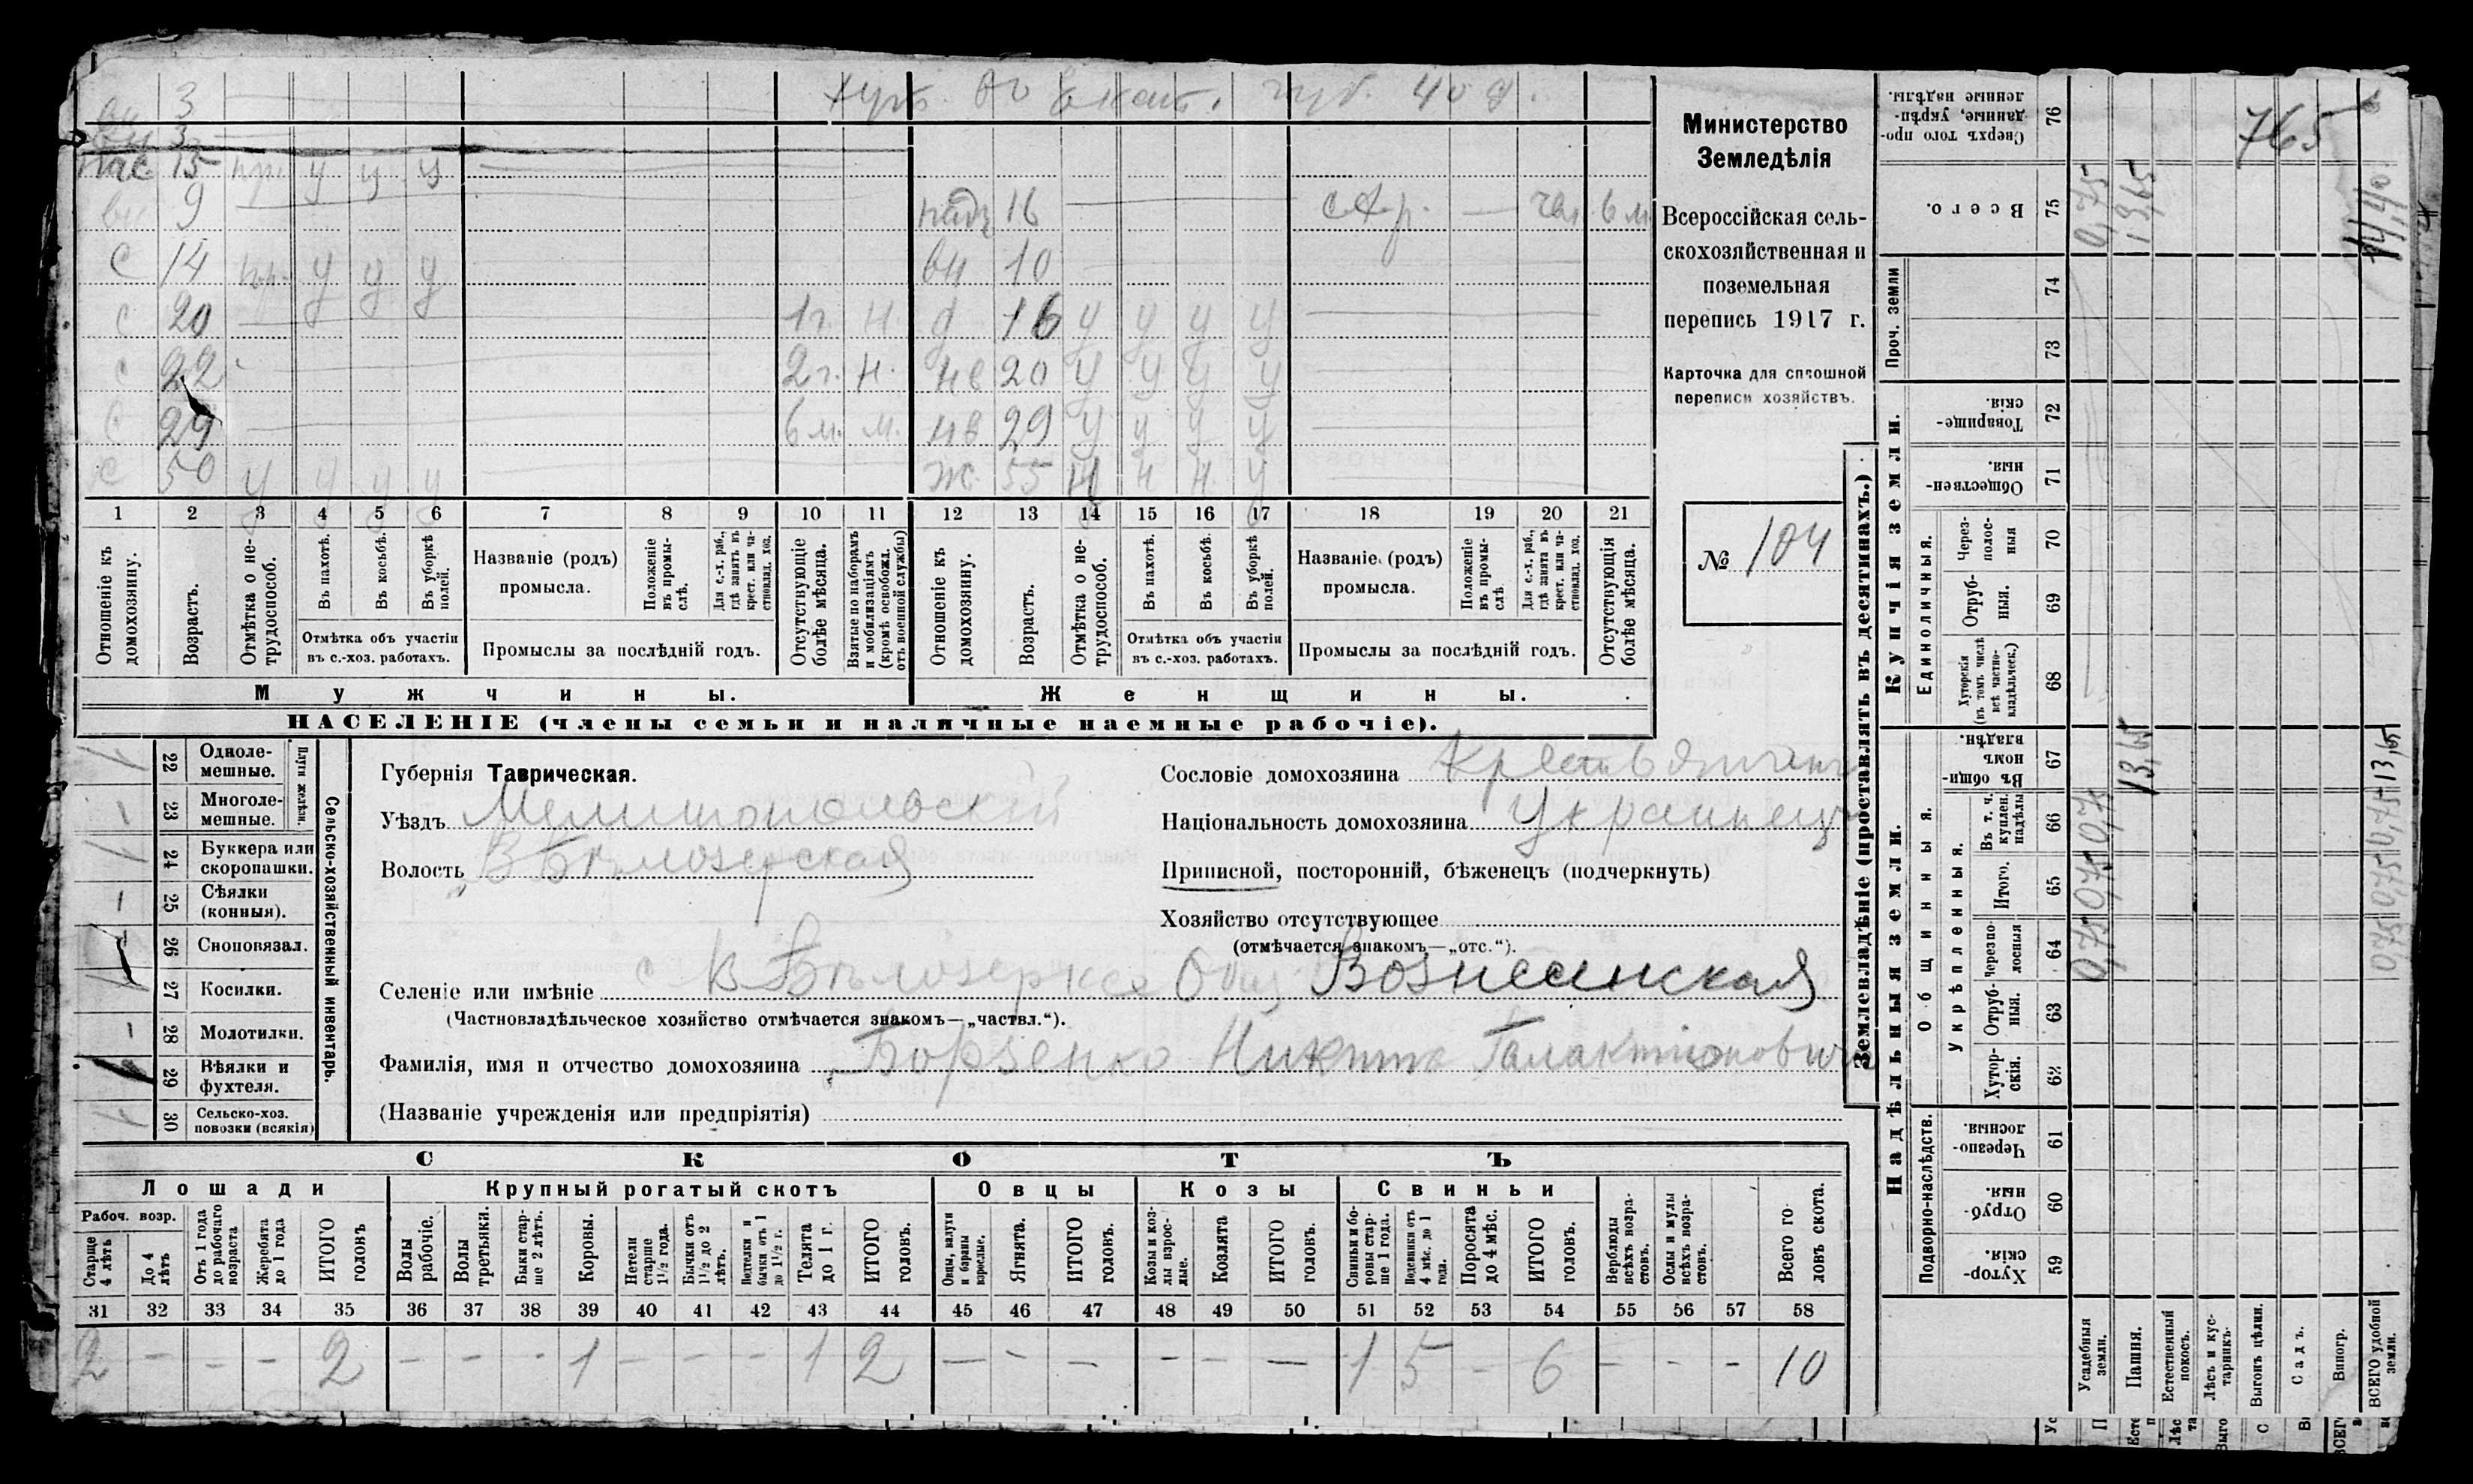 вн 3
вн 3
пас. 15 пр. у у у
вн 9 падч 16 6 м.
С 14 пр. у у у вн 10
С 20 1 г. Н. д 16 у у у у
С 22 2 г. Н. нв 20 у у у у
С 29 6 м. н. нв 29 у у у у
С 50 у у у у ж. 55 н н н. у
1 2 3 4 5 6 7 8 9 10 11 12 13 14 15 16 17 18 19 20 21
Отношеніе къ домохозяину.
Возрастъ.
Отмѣтка о нетрудоспособ.
Въ пахотѣ.
Въ косьбѣ.
Въ уборкѣ полей.
Отмѣтка объ участіи въ с.-хоз. работахъ.
Названіе (родъ) промысла.
Положеніе въ промыслѣ.
Для с.-х. раб., гдѣ занятъ въ крест. или частновлад. хоз.
Промыслы за послѣдній годъ.
Отсутствующіе болѣе мѣсяца.
Взятые по наборамъ и мобилизаціямъ (кромѣ освобожд. отъ военной службы)
Отношеніе къ домохозяину.
Возрастъ.
Отмѣтка о нетрудоспособ.
Въ пахотѣ.
Въ косьбѣ.
Въ уборкѣ полей.
Отмѣтка объ участіи въ с.-хоз. работахъ.
Названіе (родъ) промысла.
Положеніе въ промыслѣ
Для с.-х. раб., гдѣ занята въ крест. или частновлад. хоз.
Промыслы за послѣдній годъ.
Отсутствующія болѣе мѣсяца.
Мужчины.
Женщины.
НАСЕЛЕНІЕ (члены семьи и наличные наемные рабочіе).
Министерство
Земледѣлія
Всероссійская сель-
скохозяйственная и
поземельная
перепись 1917 г.
Карточка для сплошной
переписи хозяйствъ.
№ 104
22 Одноле-мешные.
23 Многоле-мешные.
Плуги желѣзн.
24 Буккера или скоропашки.
25 Сѣялки (конныя).
26 Сноповязал.
27 Косилки.
28 Молотилки.
29 Вѣялки и фухтеля.
30 Сельско-хоз. повозки (всякія)
Сельско-хозяйственный инвентарь.
Губернія Таврическая.
Уѣздъ Мелитопольский
Волость В Бѣлозерская
Сословіе домохозяина Крестьянинъ
Національность домохозяина Украинецъ
Приписной, посторонній, бѣженецъ (подчеркнуть)
Хозяйство отсутствующее
(отмѣчается знакомъ—„отс.“).
Селеніе или имѣніе с В Бѣлозерка Общ Вознесенская
(Частновладѣльческое хозяйство отмѣчается знакомъ—„частвл.“).
Фамилія, имя и отчество домохозяина Борзенко Никита Галактионович
(Названіе учрежденія или предпріятія)
СКОТЪ
Лошади Крупный рогатый скотъ Овцы Козы Свиньи
Рабоч. возр.
Старше 4 лѣтъ
До 4 лѣтъ
Отъ 1 года до рабочаго возраста
Жеребята до 1 года
ИТОГО головъ
Волы рабочіе.
Волы третьяки.
Быки старше 2 лѣтъ.
Коровы.
Нетели старше 1½ года.
Бычки отъ 1½ до 2 лѣтъ.
Подтелки и бычки отъ 1 до 1½ г.
Телята до 1 г.
ИТОГО головъ.
Овцы, валухи и бараны взрослые.
Ягнята.
ИТОГО головъ.
Козы и козлы взрослые.
Козлята
ИТОГО головъ.
Свиньи и боровы старше 1 года.
Подсвинки отъ 4 мѣс. до 1 года.
Поросята до 4 мѣс.
ИТОГО головъ.
Верблюды всѣхъ возрастовъ.
Ослы и мулы всѣхъ возрастовъ.
Всего головъ скота.
31 32 33 34 35 36 37 38 39 40 41 42 43 44 45 46 47 48 49 50 51 52 53 54 55 56 57 58
2 – – – 2 – – – 1 – – – 1 2 — – — – – — 1 5 – 6 – – – 10
Землевладѣніе (проставлять въ десятинахъ.)
Надѣльныя земли.
Купчія земли.
Подворно-наслѣдств.
Общинныя.
Укрѣпленныя.
Единоличныя.
Проч. земли
Хуторскія. 59
Отрубныя. 60
Черезполосныя. 61
Хуторскія. 62
Отрубныя. 63
Черезполосныя 64
Итого. 65
Въ т. ч. куплен. надѣлы 66
Въ общинномъ владѣн. 67
Хуторскія (въ томъ числѣ всѣ частновладѣльческ.) 68
Отрубныя. 69
Черезполосныя 70
Общественныя. 71
Товарищескія. 72
73
74
Всего. 75
Сверхъ того проданные, укрѣпленные надѣлы. 76
Усадебныя земли. 0,75 0,75 0,7 0,75
Пашня. 13,65 13,65
Естественный покосъ.
Лѣсъ и кустарникъ.
Выгонъ цѣлин. 765
Садъ.
Виногр.
ВСЕГО удобной земли. 0,75 0,75 0,75 13,65 14,40